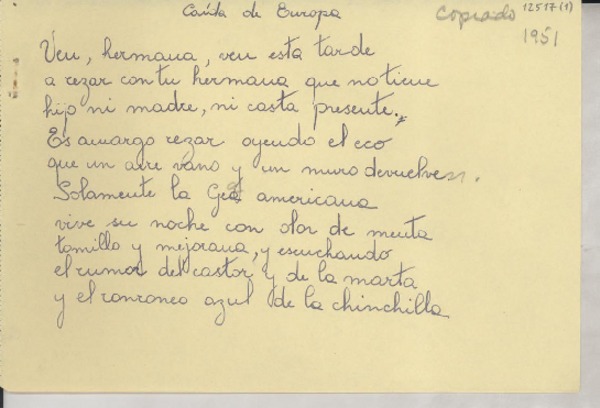 Caída de Europa
Copiado
12517(1)
1951
Ven, hermana, ven esta tarde
a rezar con tu hermana que no tiene
hijo ni madre, ni casta presente.
Es amargo rezar oyendo el eco
que un aire vano y un muro devuelven.
Solamente la Gea americana
vive su noche con olor de menta
tomillo y mejorana, y escuchando
el rumor del castor y de la marta
y el ronroneo azul de la chinchilla